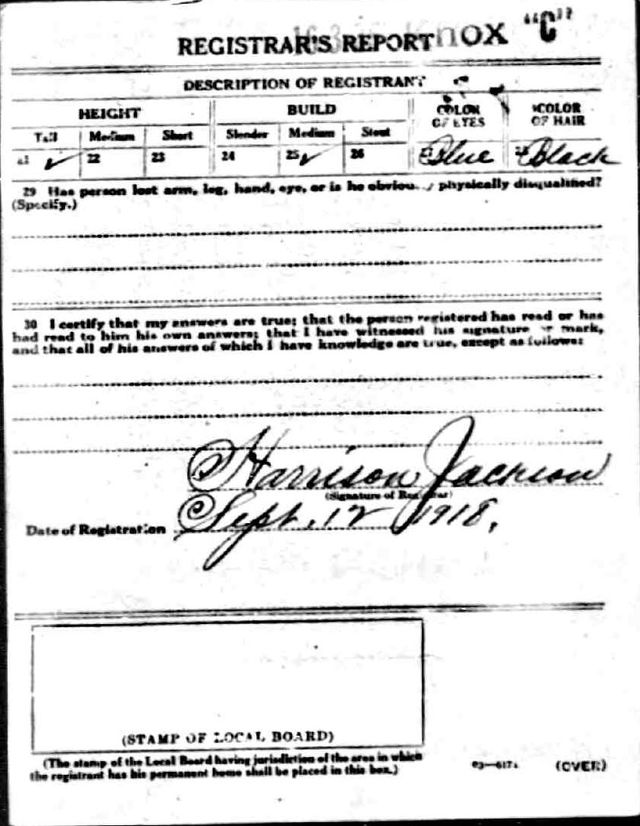 REGISTRAR'S REPORT 16 3 Knox "C"
DESCRIPTION OF REGISTRANT
HEIGHT BUILD COLOR OF EYES COLOR OF HAIR
Tall Medium Short Slender Medium Stout
21 ✓ 22 23 24 25 ✓ 26 Blue Black
29 Has person lost arm, leg, hand, eye, or is he obviously physically disqualified?
(Specify.)
30 I certify that my answers are true; that the person registered has read or has
had read to him his own answers; that I have witnessed his signature or mark,
and that all of his answers of which I have knowledge are true, except as follows:
Harrison Jackson
(Signature of Registrar)
Date of Registration Sept. 12 1918.
(STAMP OF LOCAL BOARD)
(The stamp of the Local Board having jurisdiction of the area in which
the registrant has his permanent home shall be placed in this box.)
(OVER)